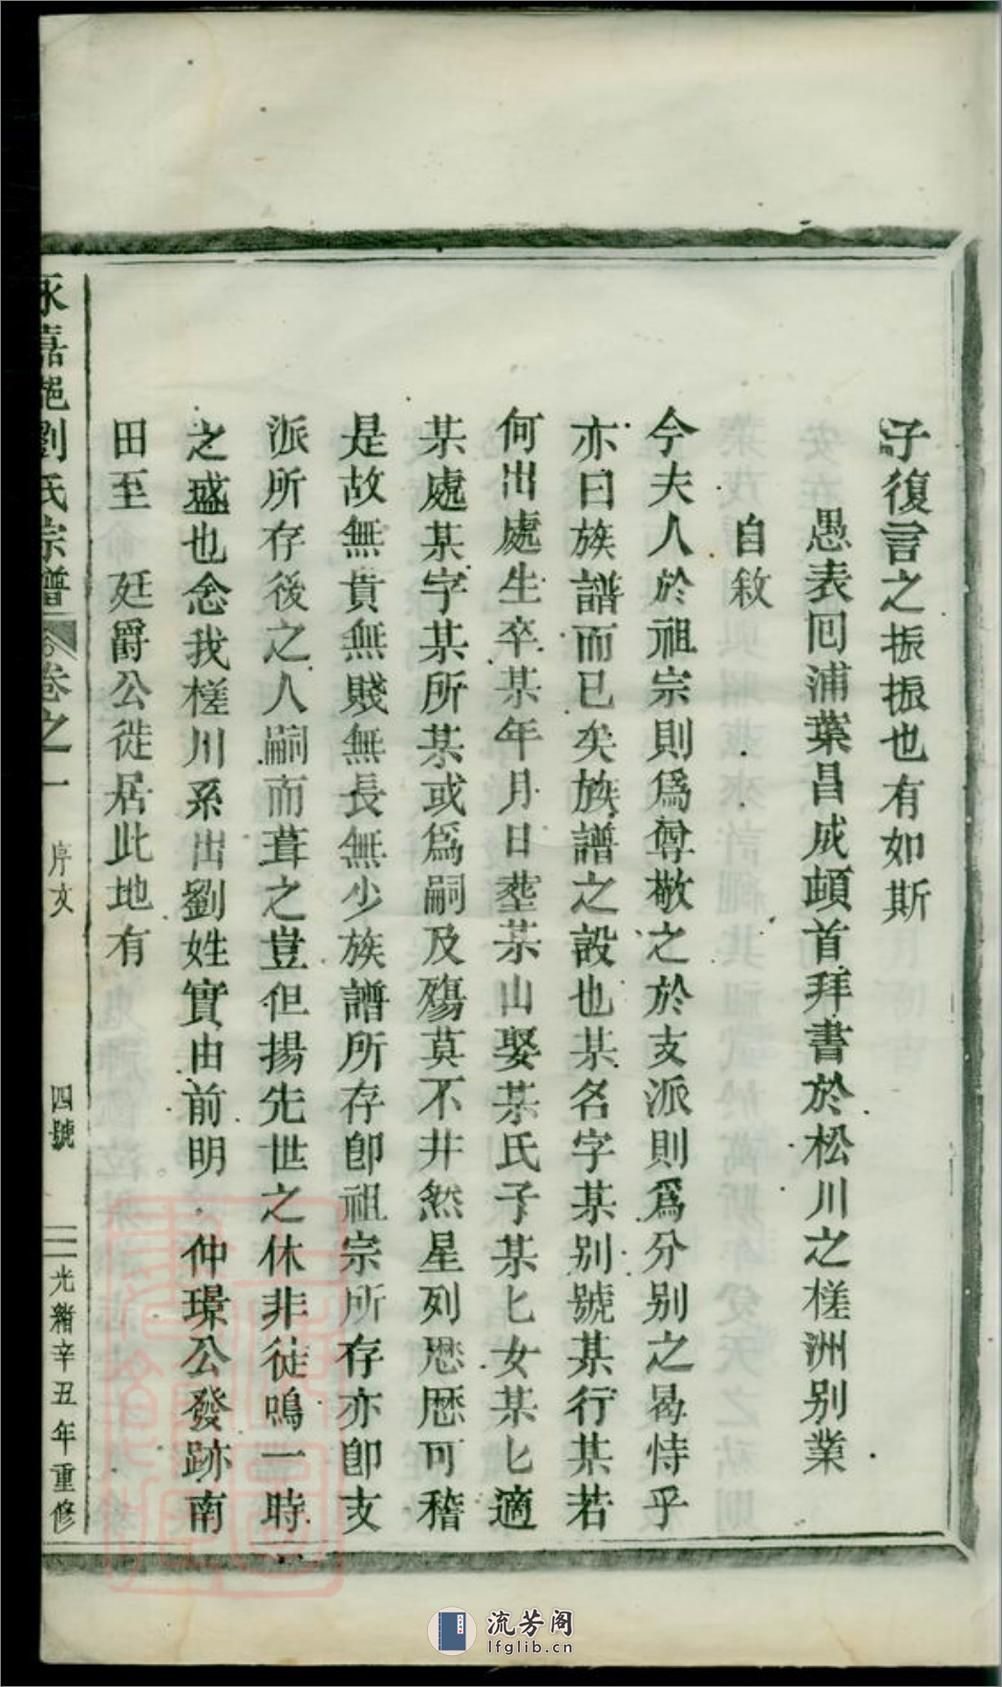 子復言之振振也有如斯
愚表囘浦葉昌成頓首拜書於松川之槎洲别業
自敘
今夫人於祖宗則爲尊敬之於支派則爲分别之曷恃乎
亦曰族譜而已矣族譜之設也某名字某别號某行某若
何出處生卒某年月日塟某山娶某氏子某匕女某匕適
某處某字某所某或爲嗣及殤莫不井然星列歴歴可稽
是故無貴無賤無長無少族譜所存卽祖宗所存亦卽支
派所存後之人嗣而葺之豈但揚先世之休非徒鳴一時
之盛也念我槎川系出劉姓實由前明仲璟公發跡南
田至 廷爵公徙居此地有
永嘉邑劉氏宗譜 卷之一 序文 四號 光緒辛丑年重修
流芳阁
lfglib.cn